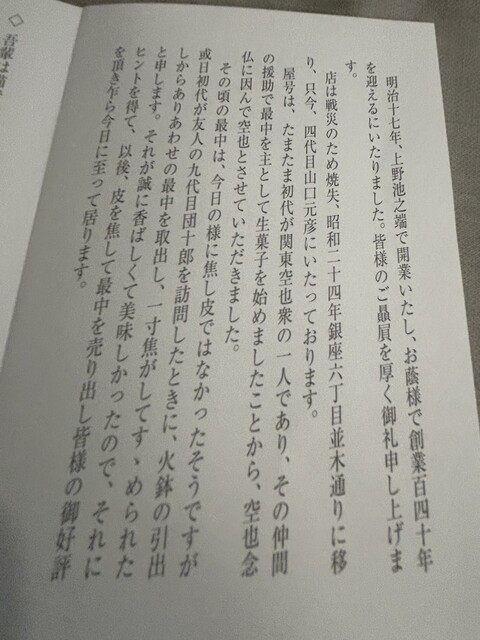 明治十七年、上野池之端で開業いたし、お蔭様で創業百四十年
を迎えるにいたりました。皆様のご贔屓を厚く御礼申し上げま
す。
店は戦災のため焼失、昭和二十四年銀座六丁目並木通りに移
り、只今、四代目山口元彦にいたっております。
屋号は、たまたま初代が関東空也衆の一人であり、その仲間
の援助で最中を主として生菓子を始めましたことから、空也念
仏に因んで空也とさせていただきました。
その頃の最中は、今日の様に焦し皮ではなかったそうですが
或日初代が友人の九代目団十郎を訪問したときに、火鉢の引出
しからありあわせの最中を取出し、一寸焦がしてすゝめられた
と申します。それが誠に香ばしくて美味しかったので、それに
ヒントを得て、以後、皮を焦して最中を売り出し皆様の御好評
を頂き乍ら今日に至って居ります。
◇吾輩は猫